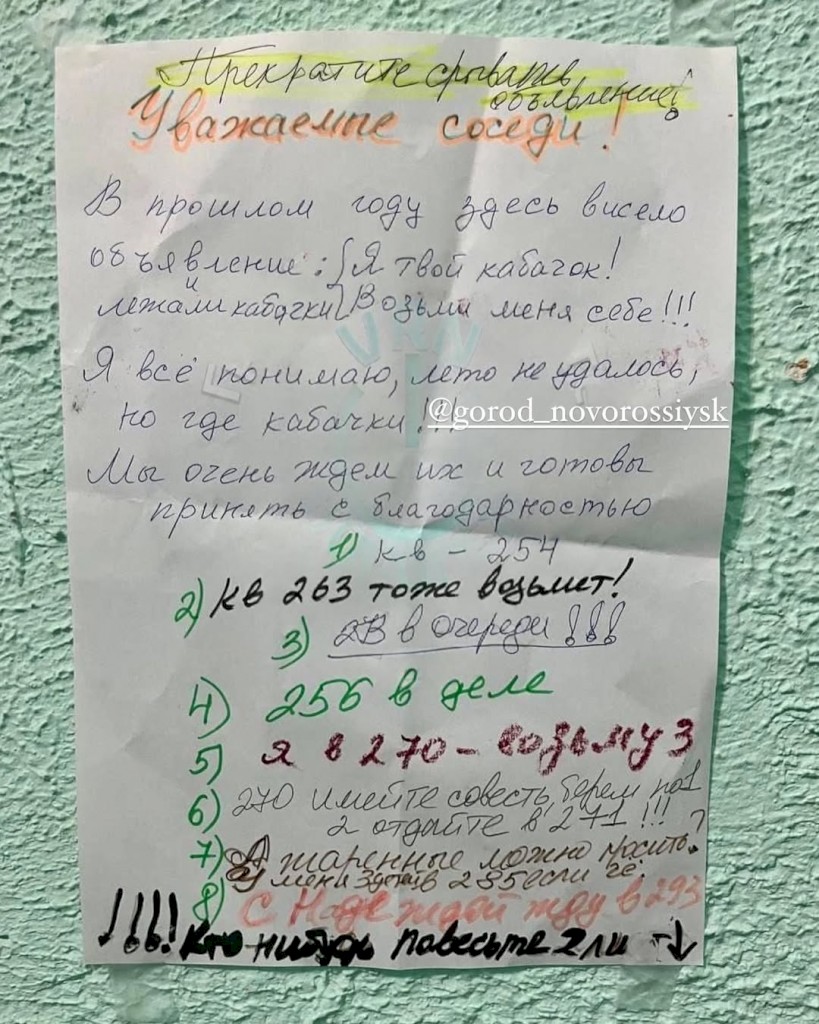 Прекратите срывать
объявление!
Уважаемые соседи!
В прошлом году здесь висело
объявление: Я твой кабачок!
и лежали кабачки Возьми меня себе!!!
Я всё понимаю, лето не удалось,
но где кабачки!!!
@gorod_novorossiysk
Мы очень ждем их и готовы
принять с благодарностью
1) кв - 254
2) кв 263 тоже возьмет!
3) в очереди!!!
4) 256 в деле
5) я в 270 - возьму 3
6) 270 имейте совесть, берем по 1
2 отдайте в 271!!!
7) А жаренные можно просить?
У меня в 285 если чё.
8) С Надеждой жду в 293
!!!! Кто-нибудь повесьте 2 ли →